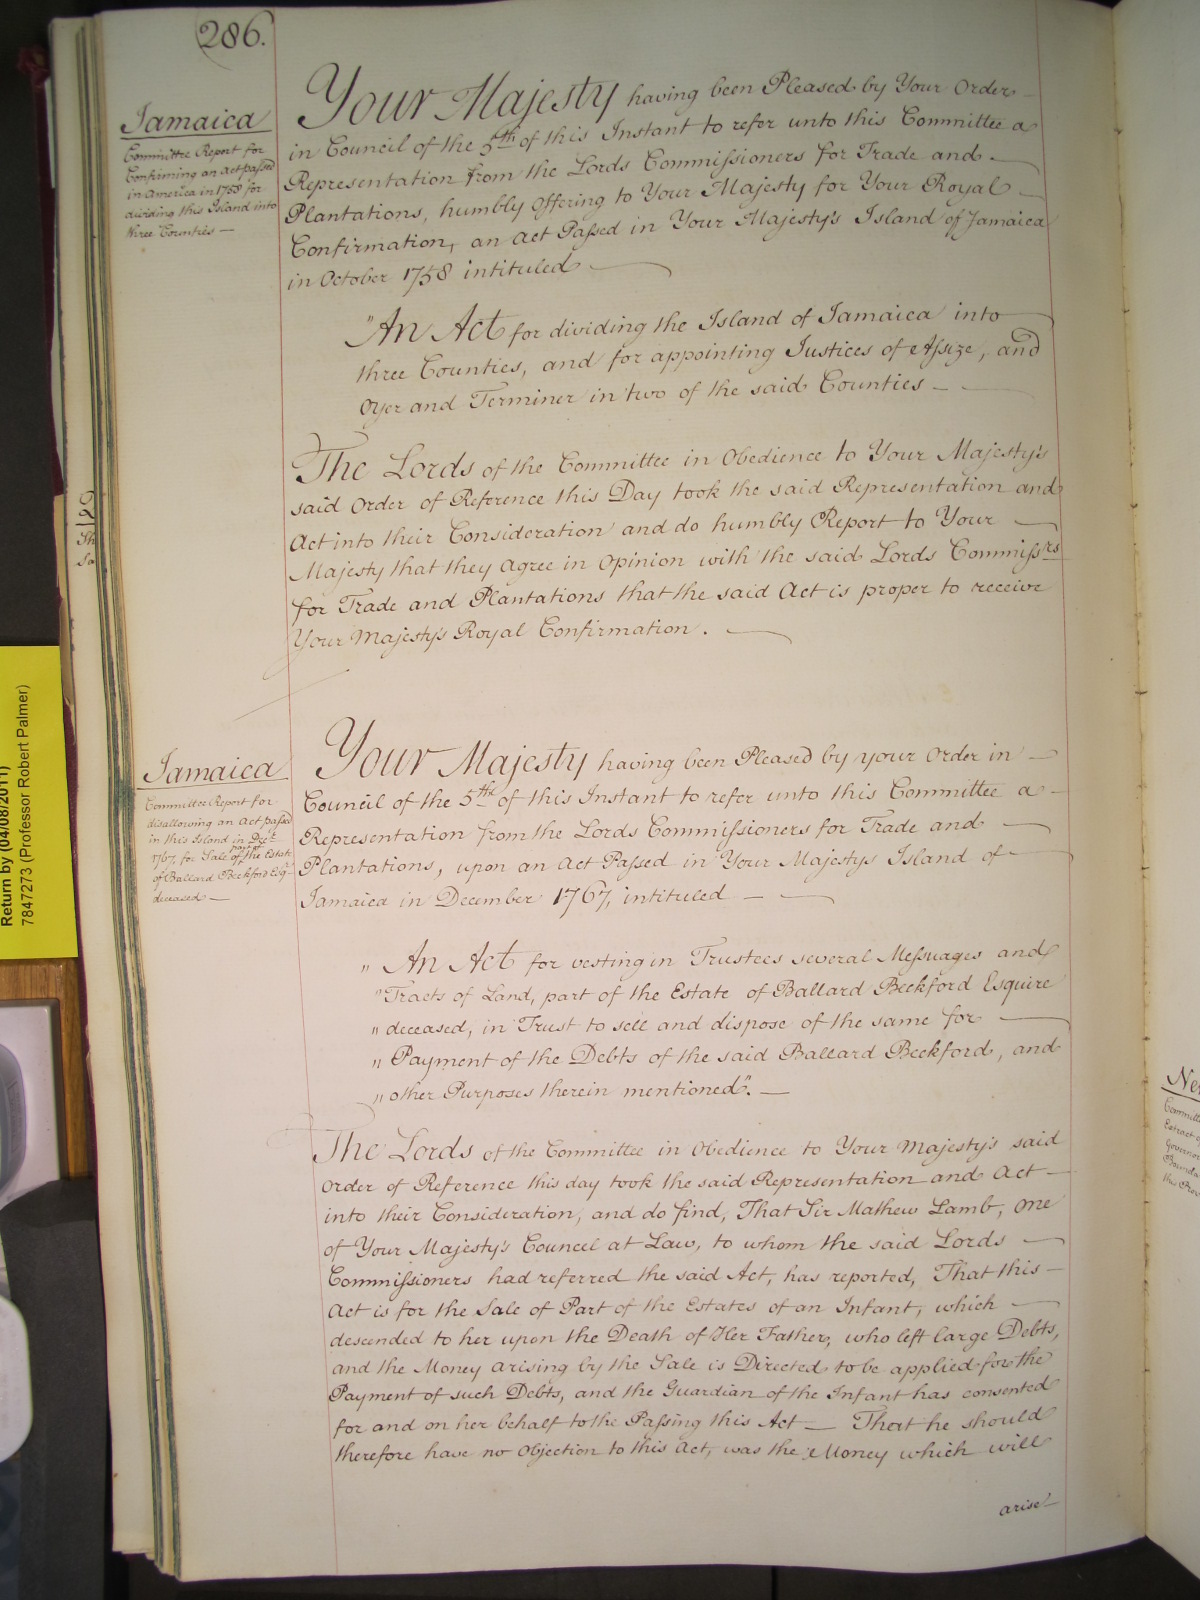 286.
Jamaica
Committee Report for
Confirming an Act passed
in America in 1758 for
dividing this Island into
three Counties —
Your Majesty having been Pleased by Your Order
in Council of the 5th of this Instant to refer unto this Committee a
Representation from the Lords Commissioners for Trade and
Plantations, humbly offering to Your Majesty for Your Royal
Confirmation, an Act Passed in Your Majesty's Island of Jamaica
in October 1758 intituled
"An Act for dividing the Island of Jamaica into
three Counties, and for appointing Justices of Assize, and
Oyer and Terminer in two of the said Counties —
The Lords of the Committee in Obedience to Your Majesty's
said Order of Reference this Day took the said Representation and
Act into their Consideration and do humbly Report to Your
Majesty that they Agree in Opinion with the said Lords Commissrs
for Trade and Plantations that the said Act is proper to receive
Your Majesty's Royal Confirmation.
Jamaica
Committee Report for
disallowing an Act passed
in this Island in Decr.
1767, for Sale of part of the Estate
of Ballard Beckford Esqr.
deceased —
Your Majesty having been Pleased by your Order in
Council of the 5th of this Instant to refer unto this Committee a
Representation from the Lords Commissioners for Trade and
Plantations, upon an Act Passed in Your Majestys Island of
Jamaica in December 1767, intituled —
" An Act for vesting in Trustees several Messuages and
" Tracts of Land, part of the Estate of Ballard Beckford Esquire
" deceased, in Trust to sell and dispose of the same for
" Payment of the Debts of the said Ballard Beckford, and
" other Purposes therein mentioned". —
The Lords of the Committee in Obedience to Your Majesty's said
Order of Reference this day took the said Representation and Act
into their Consideration, and do find, That Sir Mathew Lamb, One
of Your Majesty's Council at Law, to whom the said Lords
Commissioners had referred the said Act, has reported, That this
Act is for the Sale of Part of the Estates of an Infant, which
descended to her upon the Death of Her Father, who left large Debts,
and the Money arising by the Sale is Directed to be applied for the
Payment of such Debts, and the Guardian of the Infant has consented
for and on her behalf to the Passing this Act — That he should
therefore have no Objection to this Act, was the Money which will
arise
Return by (04/08/2011)
7847273 (Professor Robert Palmer)